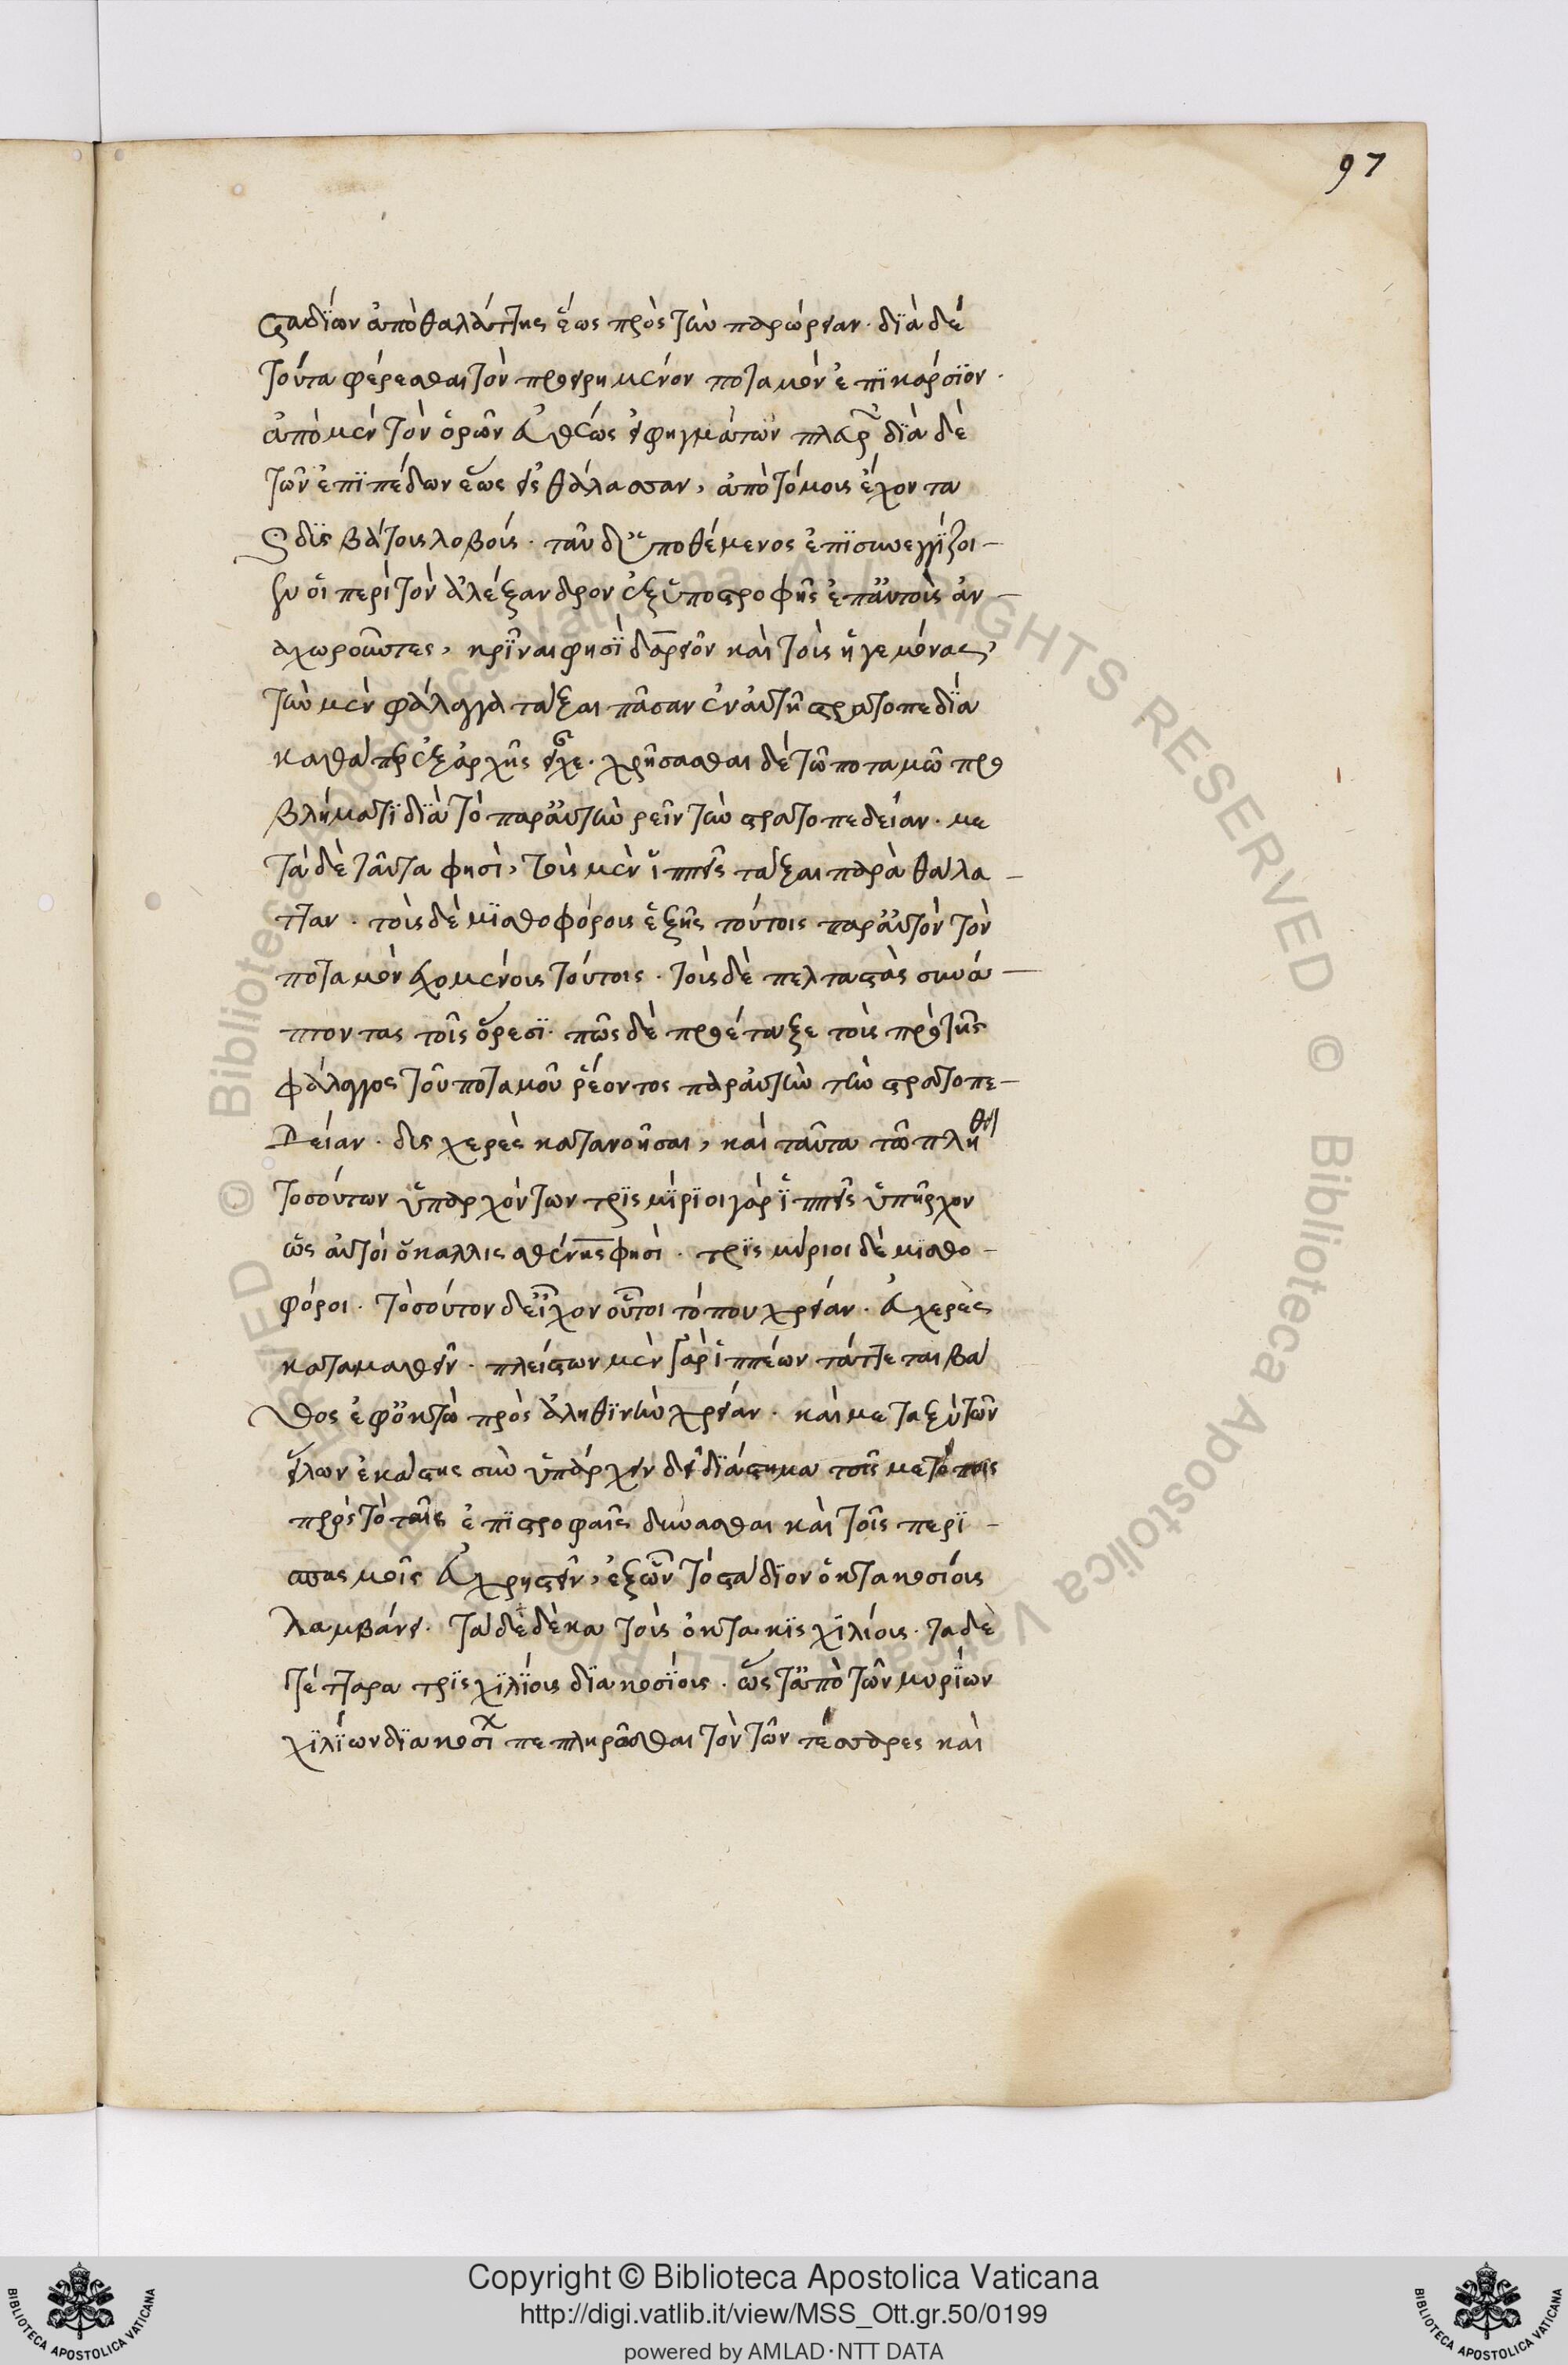 97
σταδίων ἀπὸ θαλάττης ἕως πρὸς τὴν παρώρειαν· διὰ δέ
τούτα φέρεσθαι τὸν προειρημένον ποταμὸν ἐπικάρσιον·
ἀπὸ μὲν τὸν ὁρῶν εὐθέως
τῶν ἐπιπέδων ἕως εἰς θάλασσαν, ἀποτόμοις ἔχοντα
λοβοίς· ὑποθέμενος ἐπὶ συνεγγίζοι-
οἱ περὶ τὸν ἀλέξανδρον ἐξ ὑποστροφῆς ἐπ' αὐτοὺς ἀν-
αχωροῦντες, κρῖναι φησὶ δαρεῖον καὶ τοὺς ἡγεμόνας,
τὴν μὲν φάλαγγα τάξαι πᾶσαν ἐν αὐτῇ στρατοπεδία
καθάπερ ἐξ ἀρχῆς εἶχε· χρήσασθαι δὲ τῷ ποταμῷ προ
βλήματι διὰ τὸ παρ' αὐτὴν ρεῖν τὴν στρατοπεδείαν· με
τὰ δὲ ταῦτα φησὶ, τοὺς μὲν ἱππεῖς τάξαι παρὰ θάλα-
τταν· τοὺς δὲ μισθοφόρους ἑξῆς τούτοις παρ' αὐτὸν τὸν
ποταμὸν ἐχομένους τούτοις· τοὺς δὲ πελταστὰς συνά-
πτοντας τοῖς ὄρεσι· πῶς δὲ προέταξε τοὺς πρὸ τῆς
φάλαγγος τοῦ ποταμοῦ ῥέοντος παρ' αὐτὴν τὴν στρατοπε-
δείαν· δυσχερὲς κατανοῆσαι, καὶ ταῦτα τῷ πλήθει
τοσούτων ὑπαρχόντων τρισμύριοι γὰρ ἱππεῖς ὑπῆρχον
ὡς αὐτὸι ὁ καλλισθένης φησὶ· τρισμύριοι δὲ μισθο-
φόροι· τοσούτον δ' εἶχον οὗτοι τόπου χρείαν· εὐχερὲς
καταμαθεῖν· πλείστων μὲν γὰρ ἱππέων τάττεται βά
θος ἐφ' ὀκτὼ πρὸς ἀληθινὴν χρείαν· καὶ μεταξὺ τῶν
εἰλῶν ἑκάστης σὺν ὑπάρχειν δεῖ διάστημα τοῖς μετόποις
πρὸς τὸ ταῖς ἐπιστροφαῖς δύνασθαι καὶ τοῖς περι-
σπασμοῖς εὐχρηστεῖν, ἐξ ὧν τὸ στάδιον ὀκτακοσίους
λαμβάνει· τὰ δὲ δέκα τοὺς ὀκτακισχιλίους· τα δὲ
τέτταρα τρισχιλίους διακοσίους· ὥς τ' ἀπὸ τῶν μυρίων
χιλίων διακοσί πεπληρῶσθαι τὸν τῶν τέσσαρες καὶ
Copyright © Biblioteca Apostolica Vaticana
http://digi.vatlib.it/view/MSS_Ott.gr.50/0199
powered by AMLAD·NTT DATA